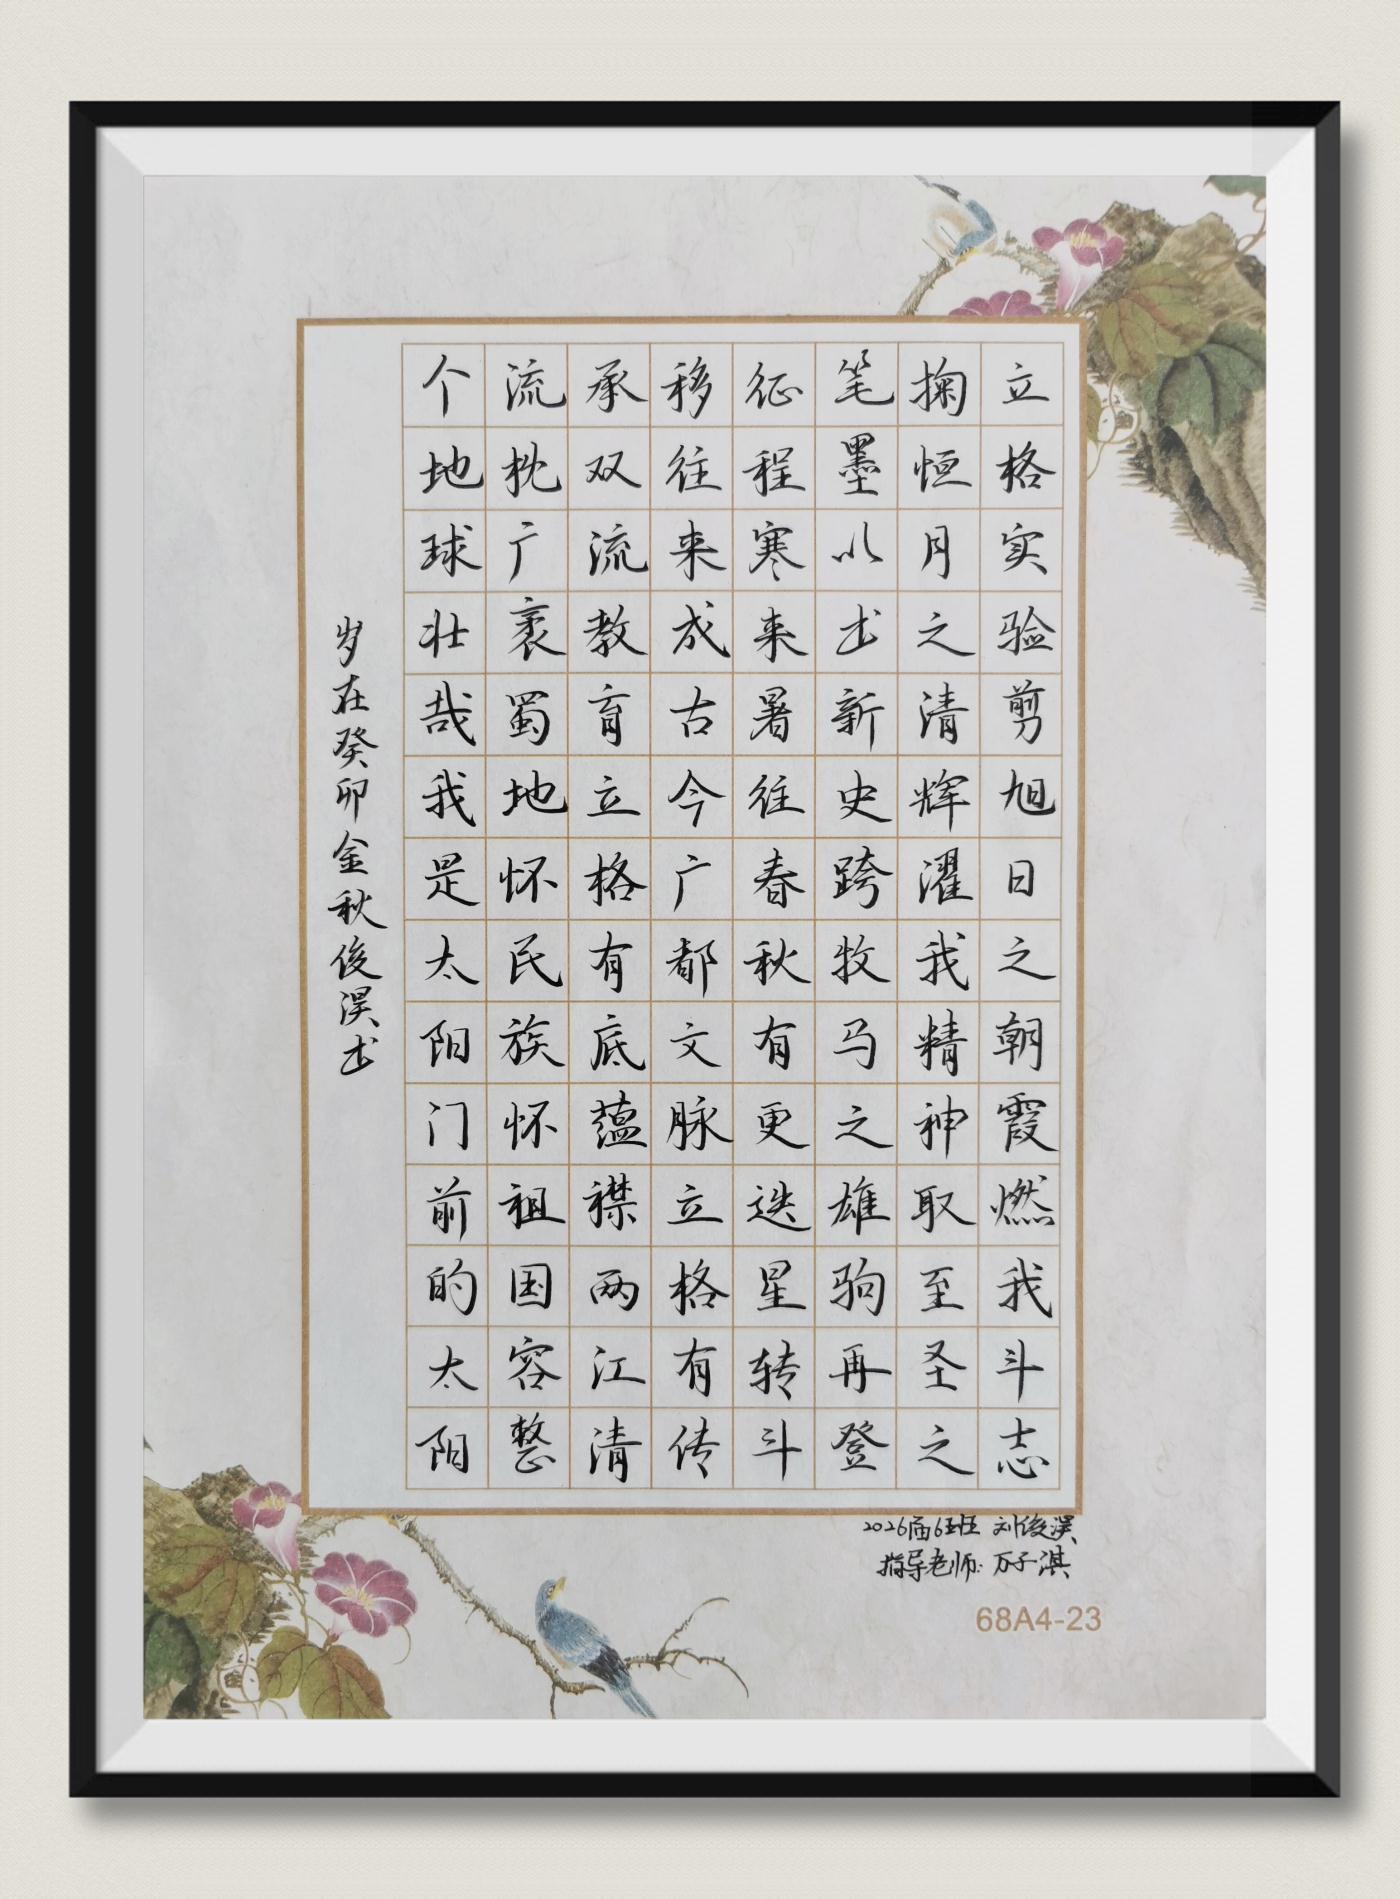 立格实验剪旭日之朝霞燃我斗志
掬恒月之清辉濯我精神取至圣之
笔墨以书新史跨牧马之雄驹再登
征程寒来暑往春秋有更迭星转斗
移往来成古今广都文脉立格有传
承双流教育立格有底蕴襟两江清
流枕广袤蜀地怀民族怀祖国容整
个地球壮哉我是太阳门前的太阳
岁在癸卯金秋俊淏书
2026届6班 刘俊淏
指导老师: 万子淇
68A4-23